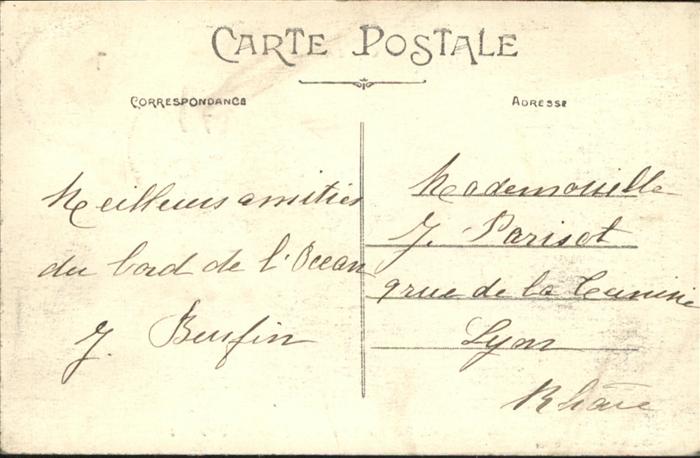 CARTE POSTALE
CORRESPONDANCE
ADRESSE
Meilleurs amitiés
du bord de l'Ocean
J.
Mademoiselle
J. Parisot
9 rue de la
Lyon
Rhône